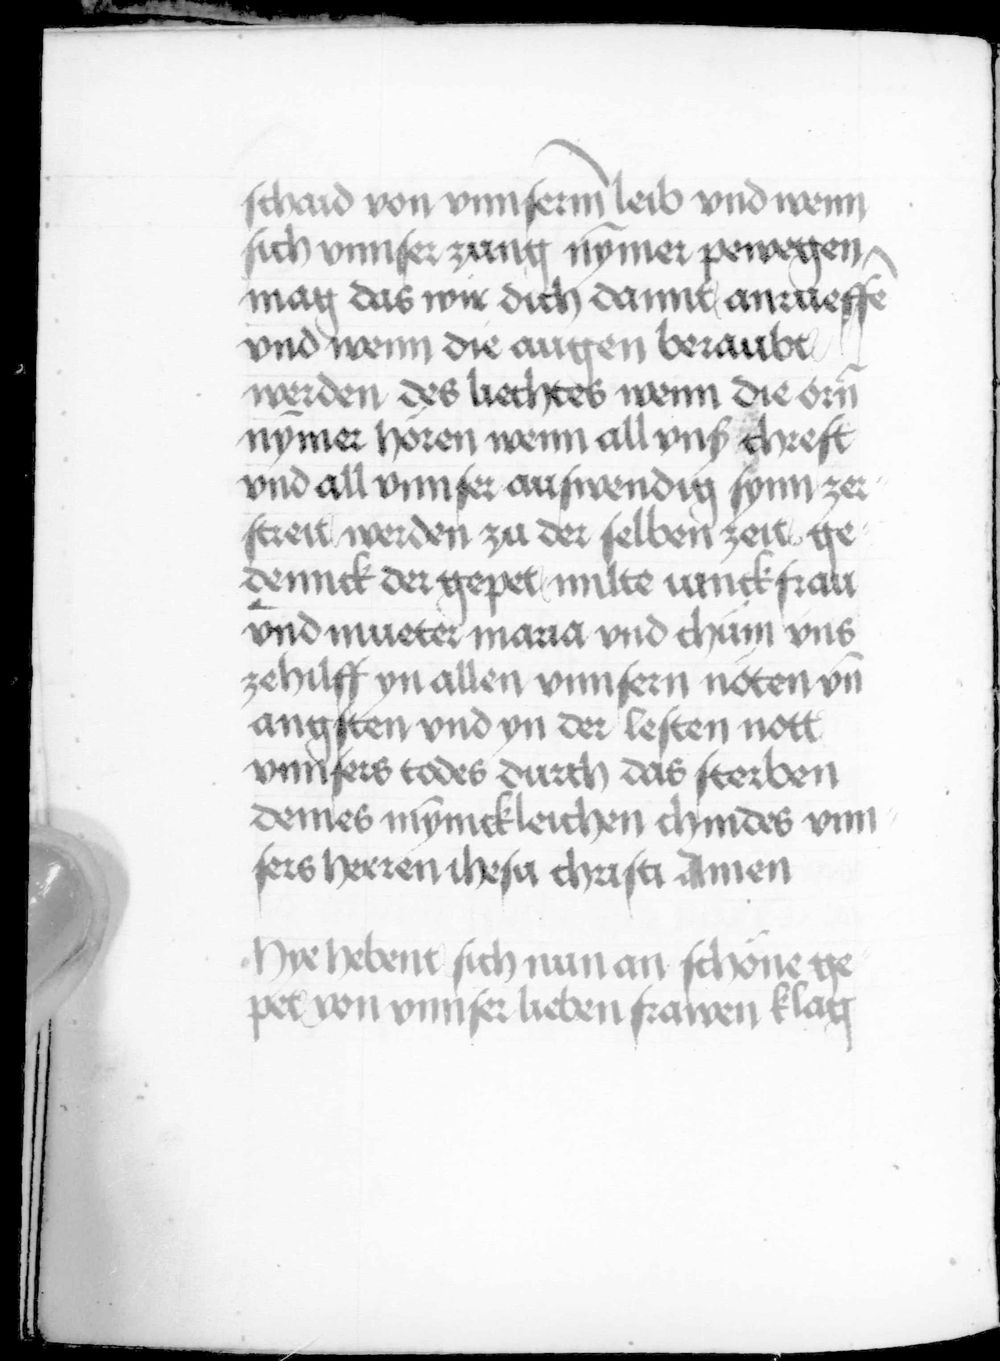 schaid von vnnserm̄ leib vnd wenn
sich vnnser zung nȳmer pewegen
mag das wir dich dannt anrueffē
vnd wenn die augen beraubt
werden des liechtes wenn die örn̄
nȳmer hören wenn all vnſ chreft
vnd all vnnser auswendig synn zer-
streit werden zu der selben zeit ge-
dennck der gepet milte iunckfrau
vnd mueter maria vnd chüm vns
zehilff yn allen vnnsern nöten vn̄
angsten vnd yn der lesten nott
vnnsers todes durch das sterben
deines mȳnickleichen chindes vnn-
sers herren ihesu christi Amen
Hye hebent sich nun an schöne ge-
pet von vnnser lieben frawen klag